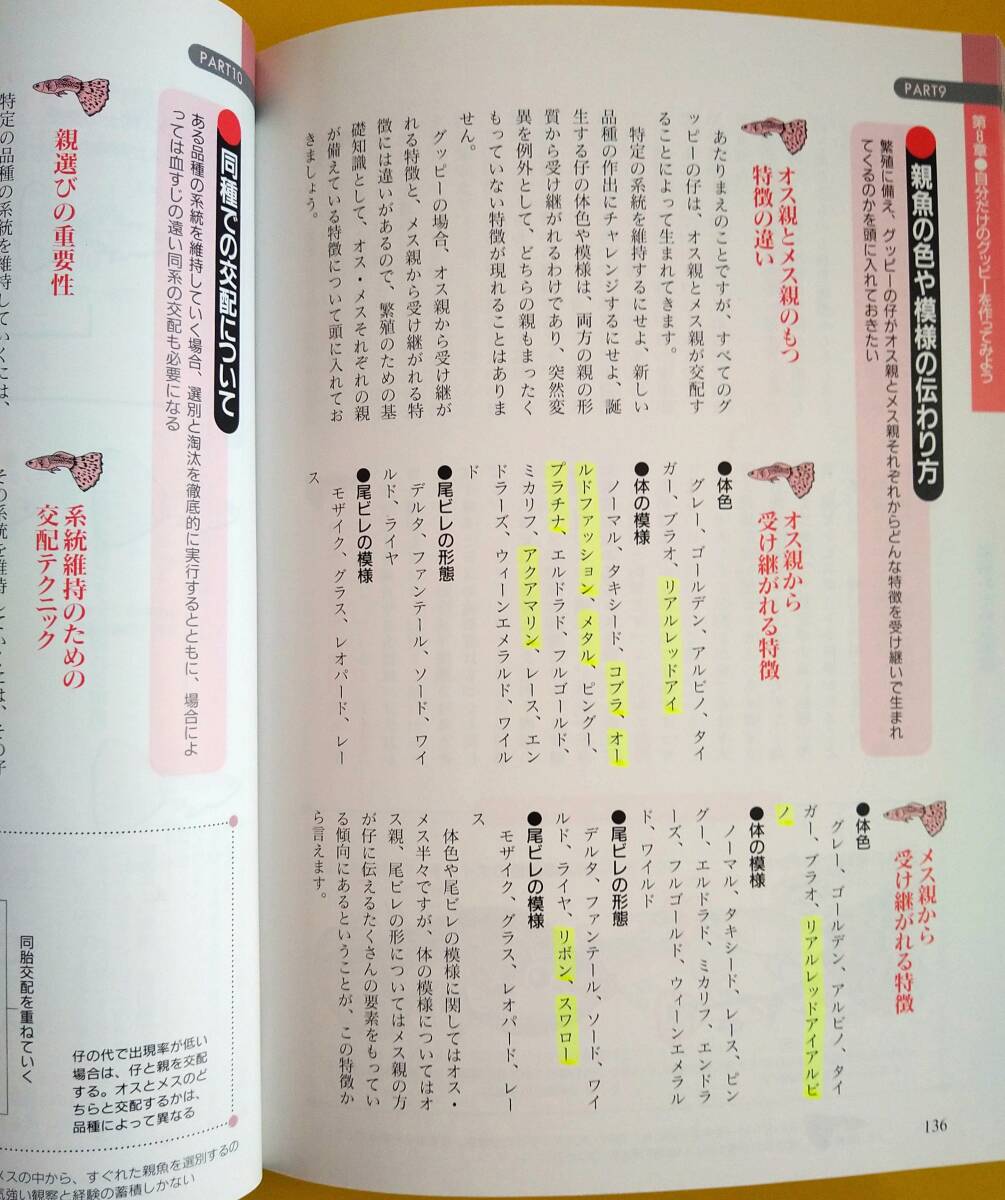 PART9
第8章●自分だけのグッピーを作ってみよう
●親魚の色や模様の伝わり方
繁殖に備え、グッピーの仔がオス親とメス親それぞれからどんな特徴を受け継いで生まれ
てくるのかを頭に入れておきたい
オス親とメス親のもつ
特徴の違い
あたりまえのことですが、すべてのグ
ッピーの仔は、オス親とメス親が交配す
ることによって生まれてきます。
特定の系統を維持するにせよ、新しい
品種の作出にチャレンジするにせよ、誕
生する仔の体色や模様は、両方の親の形
質から受け継がれるわけであり、突然変
異を例外として、どちらの親もまったく
もっていない特徴が現れることはありま
せん。
グッピーの場合、オス親から受け継が
れる特徴と、メス親から受け継がれる特
徴には違いがあるので、繁殖のための基
礎知識として、オス・メスそれぞれの親
が備えている特徴について頭に入れてお
きましょう。
オス親から
受け継がれる特徴
●体色
グレー、ゴールデン、アルビノ、タイ
ガー、ブラオ、リアルレッドアイ
●体の模様
ノーマル、タキシード、コブラ、オー
ルドファッション、メタル、ピングー、
プラチナ、エルドラド、フルゴールド、
ミカリフ、アクアマリン、レース、エン
ドラーズ、ウィーンエメラルド、ワイル
ド
●尾ビレの形態
デルタ、ファンテール、ソード、ワイ
ルド、ライヤ
●尾ビレの模様
モザイク、グラス、レオパード、レー
ス
メス親から
受け継がれる特徴
●体色
グレー、ゴールデン、アルビノ、タイ
ガー、ブラオ、リアルレッドアイアルビ
ノ
●体の模様
ノーマル、タキシード、レース、ピン
グー、エルドラド、ミカリフ、エンドラ
ーズ、フルゴールド、ウィーンエメラル
ド、ワイルド
●尾ビレの形態
デルタ、ファンテール、ソード、ワイ
ルド、ライヤ、リボン、スワロー
●尾ビレの模様
モザイク、グラス、レオパード、レー
ス
体色や尾ビレの模様に関してはオス・
メス半々ですが、体の模様についてはオ
ス親、尾ビレの形についてはメス親の方
が仔に伝えるたくさんの要素をもってい
る傾向にあるということが、この特徴か
ら言えます。
136
PART10
●同種での交配について
ある品種の系統を維持していく場合、選別と淘汰を徹底的に実行するとともに、場合によ
っては血すじの遠い同系の交配も必要になる
親選びの重要性
特定の品種の系統を維持していくには、
系統維持のための
交配テクニック
その系統を維持していくことは、その子
同胎交配を重ねていく
仔の代で出現率が低い
場合は、仔と親を交配
する。オスとメスのど
ちらと交配するかは、
品種によって異なる
メスの中から、すぐれた親魚を選別するの
気強い観察と経験の蓄積しかない